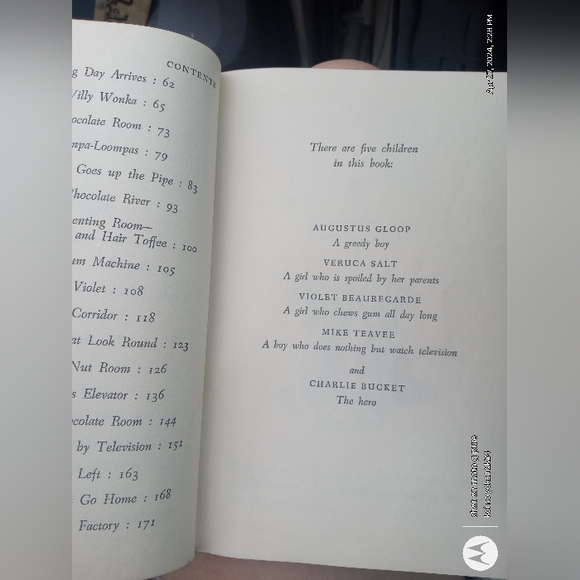 CONTENTS
g Day Arrives : 62
Villy Wonka : 65
ocolate Room : 73
mpa-Loompas : 79
Goes up the Pipe : 83
Chocolate River : 93
enting Room—
and Hair Toffee : 100
um Machine : 105
Violet : 108
Corridor : 118
at Look Round : 123
Nut Room : 126
s Elevator : 136
ocolate Room : 144
by Television : 151
Left : 163
Go Home : 168
Factory : 171
There are five children
in this book:
AUGUSTUS GLOOP
A greedy boy
VERUCA SALT
A girl who is spoiled by her parents
VIOLET BEAUREGARDE
A girl who chews gum all day long
MIKE TEAVEE
A boy who does nothing but watch television
and
CHARLIE BUCKET
The hero
2024, 2:28 PM